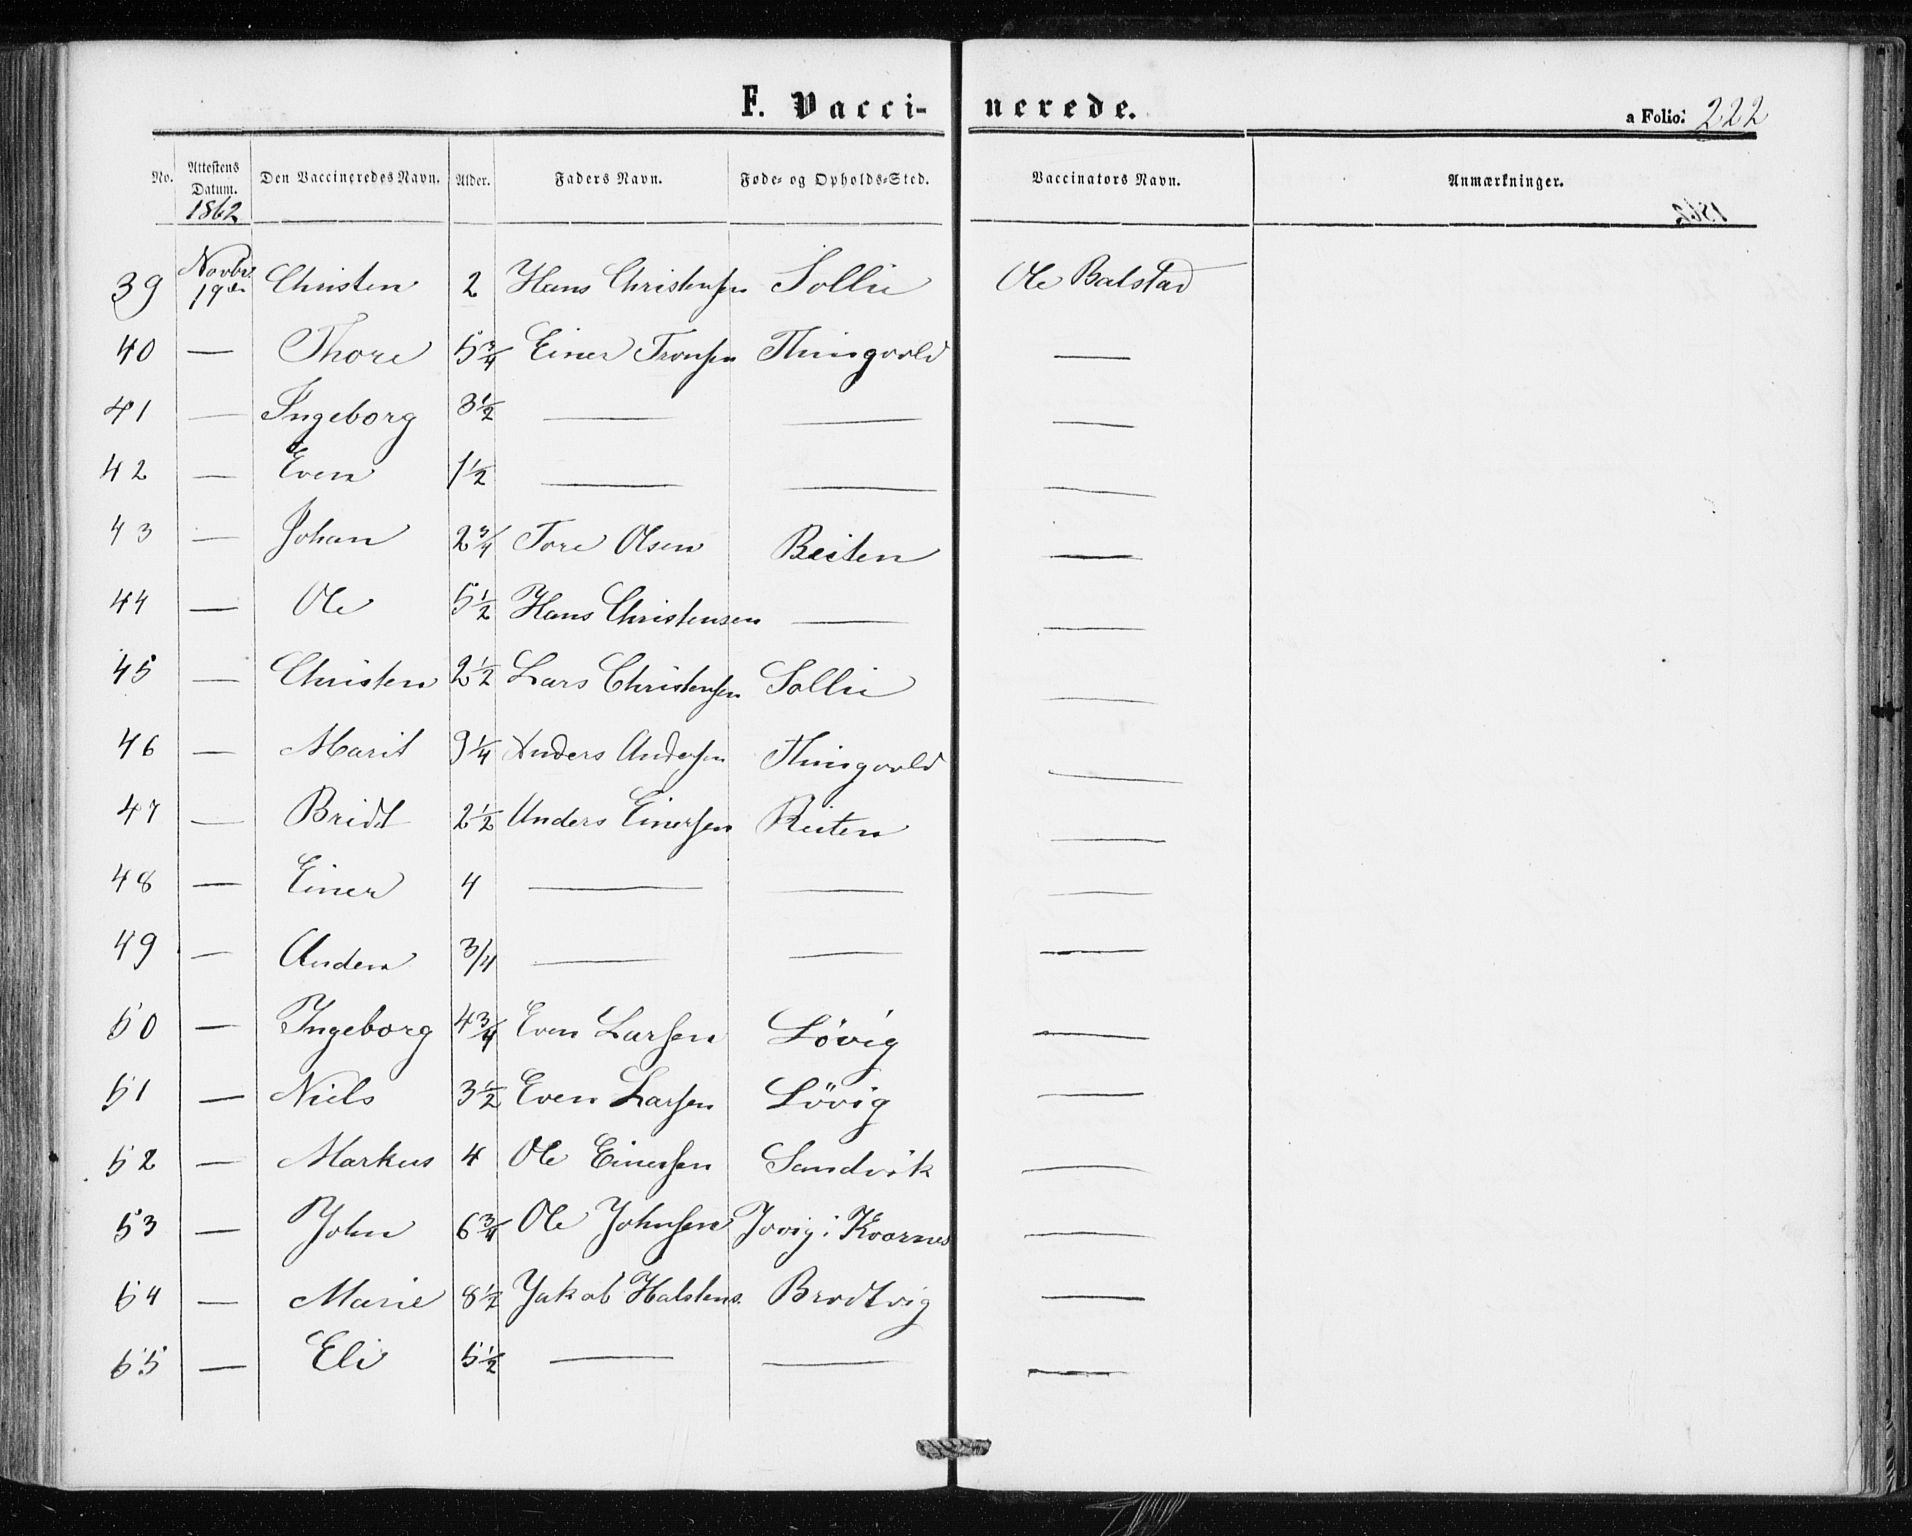 F. Vaccinerede.
a Folio: 222
No. Attestens Datum. Den Vaccineredes Navn. Alder. Faders Navn. Føde- og Opholds-Sted. Vaccinators Navn. Anmærkninger.
1862
39 Novbr. 19de Christen 2 Hans Christensen Sollie Ole Balstad
40 — Thore 5 3/4 Einer Tronsen Thingvold —
41 — Ingeborg 3 1/2 — — —
42 — Even 1 1/2 — — —
43 — Johan 2 3/4 Tore Olsen Reiten —
44 — Ole 5 1/2 Hans Christensen — —
45 — Christen 2 1/2 Lars Christensen Sollie —
46 — Marit 9 1/4 Anders Andersen Thingvold —
47 — Bridt 2 1/2 Anders Einersen Reiten —
48 — Einer 4 — — —
49 — Anders 3/4 — — —
50 — Ingeborg 4 3/4 Even Larsen Løvig —
51 — Niels 3 1/2 Even Larsen Løvig —
52 — Markus 4 Ole Einersen Sandvik —
53 — John 6 3/4 Ole Johnsen i Kvornes —
54 — Marie 8 1/2 Jakob Halstens. Brodtvig —
55 — Eli 5 1/2 — — —